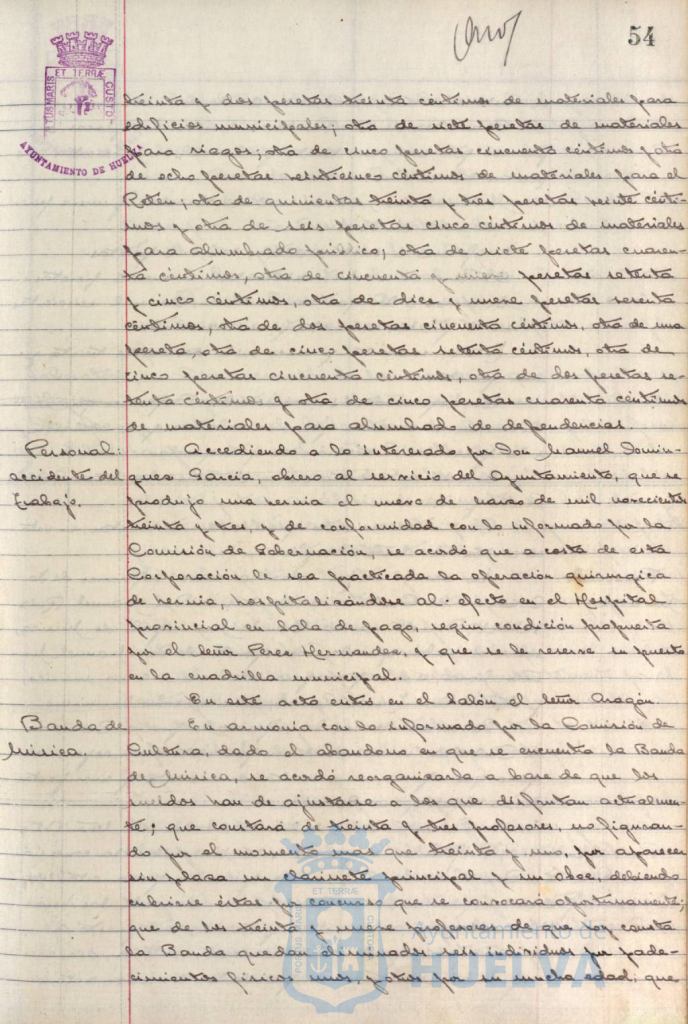 54
PORTUS MARIS ET TERRÆ CUSTODIA
AYUNTAMIENTO DE HUELVA
treinta y dos pesetas treinta céntimos de materiales para
edificios municipales; otra de siete pesetas de materiales
para riegos; otra de cinco pesetas cincuenta céntimos y otra
de ocho pesetas veinticinco céntimos de materiales para el
Retén; otra de quinientas treinta y tres pesetas veinte cénti-
mos y otra de seis pesetas cinco céntimos de materiales
para alumbrado público; otra de siete pesetas cuaren-
ta céntimos, otra de cincuenta y nueve pesetas setenta
y cinco céntimos, otra de diez y nueve pesetas sesenta
céntimos, otra de dos pesetas cincuenta céntimos, otra de una
peseta, otra de cinco pesetas setenta céntimos, otra de
cinco pesetas cincuenta céntimos, otra de dos pesetas se-
tenta céntimos y otra de cinco pesetas cuarenta céntimos
de materiales para alumbrado de dependencias.
Personal:
accidente del
trabajo.
Accediendo a lo interesado por Don Manuel Domín-
guez García, obrero al servicio del Ayuntamiento, que se
produjo una hernia el nueve de marzo de mil novecientos
treinta y tres, y de conformidad con lo informado por la
Comisión de Gobernación, se acordó que a costa de esta
Corporación le sea practicada la operación quirurgica
de hernia, hospitalizándose al efecto en el Hospital
Provincial en Sala de pago, según condición propuesta
por el Señor Perez Hernandez, y que se le reserve su puesto
en la cuadrilla municipal.
En este acto entró en el Salón el Señor Aragón.
Banda de
Música.
En armonía con lo informado por la Comisión de
Cultura, dado el abandono en que se encuentra la Banda
de Música, se acordó reorganizarla a base de que los
sueldos han de ajustarse a los que disfrutan actualmen-
te; que constará de treinta y tres profesores, no figuran-
do por el momento más que treinta y uno, por aparecer
sin plaza un clarinete principal y un oboe, debiendo
cubrirse éstas por concurso que se convocará oportunamente;
que de los treinta y nueve profesores de que hoy consta
la Banda quedan eliminados seis individuos por pade-
cimientos físicos unos, y otros por su mucha edad; que
PORTUS MARIS ET TERRÆ CUSTODIA
Ayuntamiento de
HUELVA